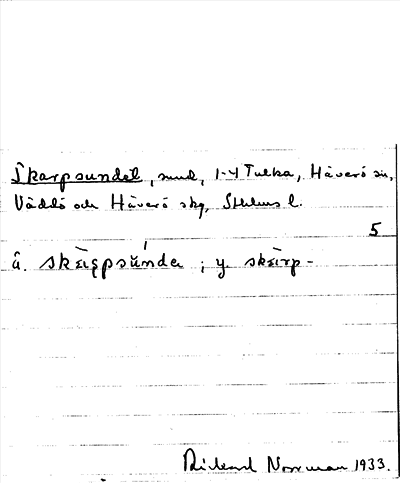 Skarpsundet, sund, 1-4 Tulka, Häverö sn,
Väddö och Häverö skg, Sthlms l.
5
ä. skärpsúndə ; y. skärp-
Rickard Norrman 1933.